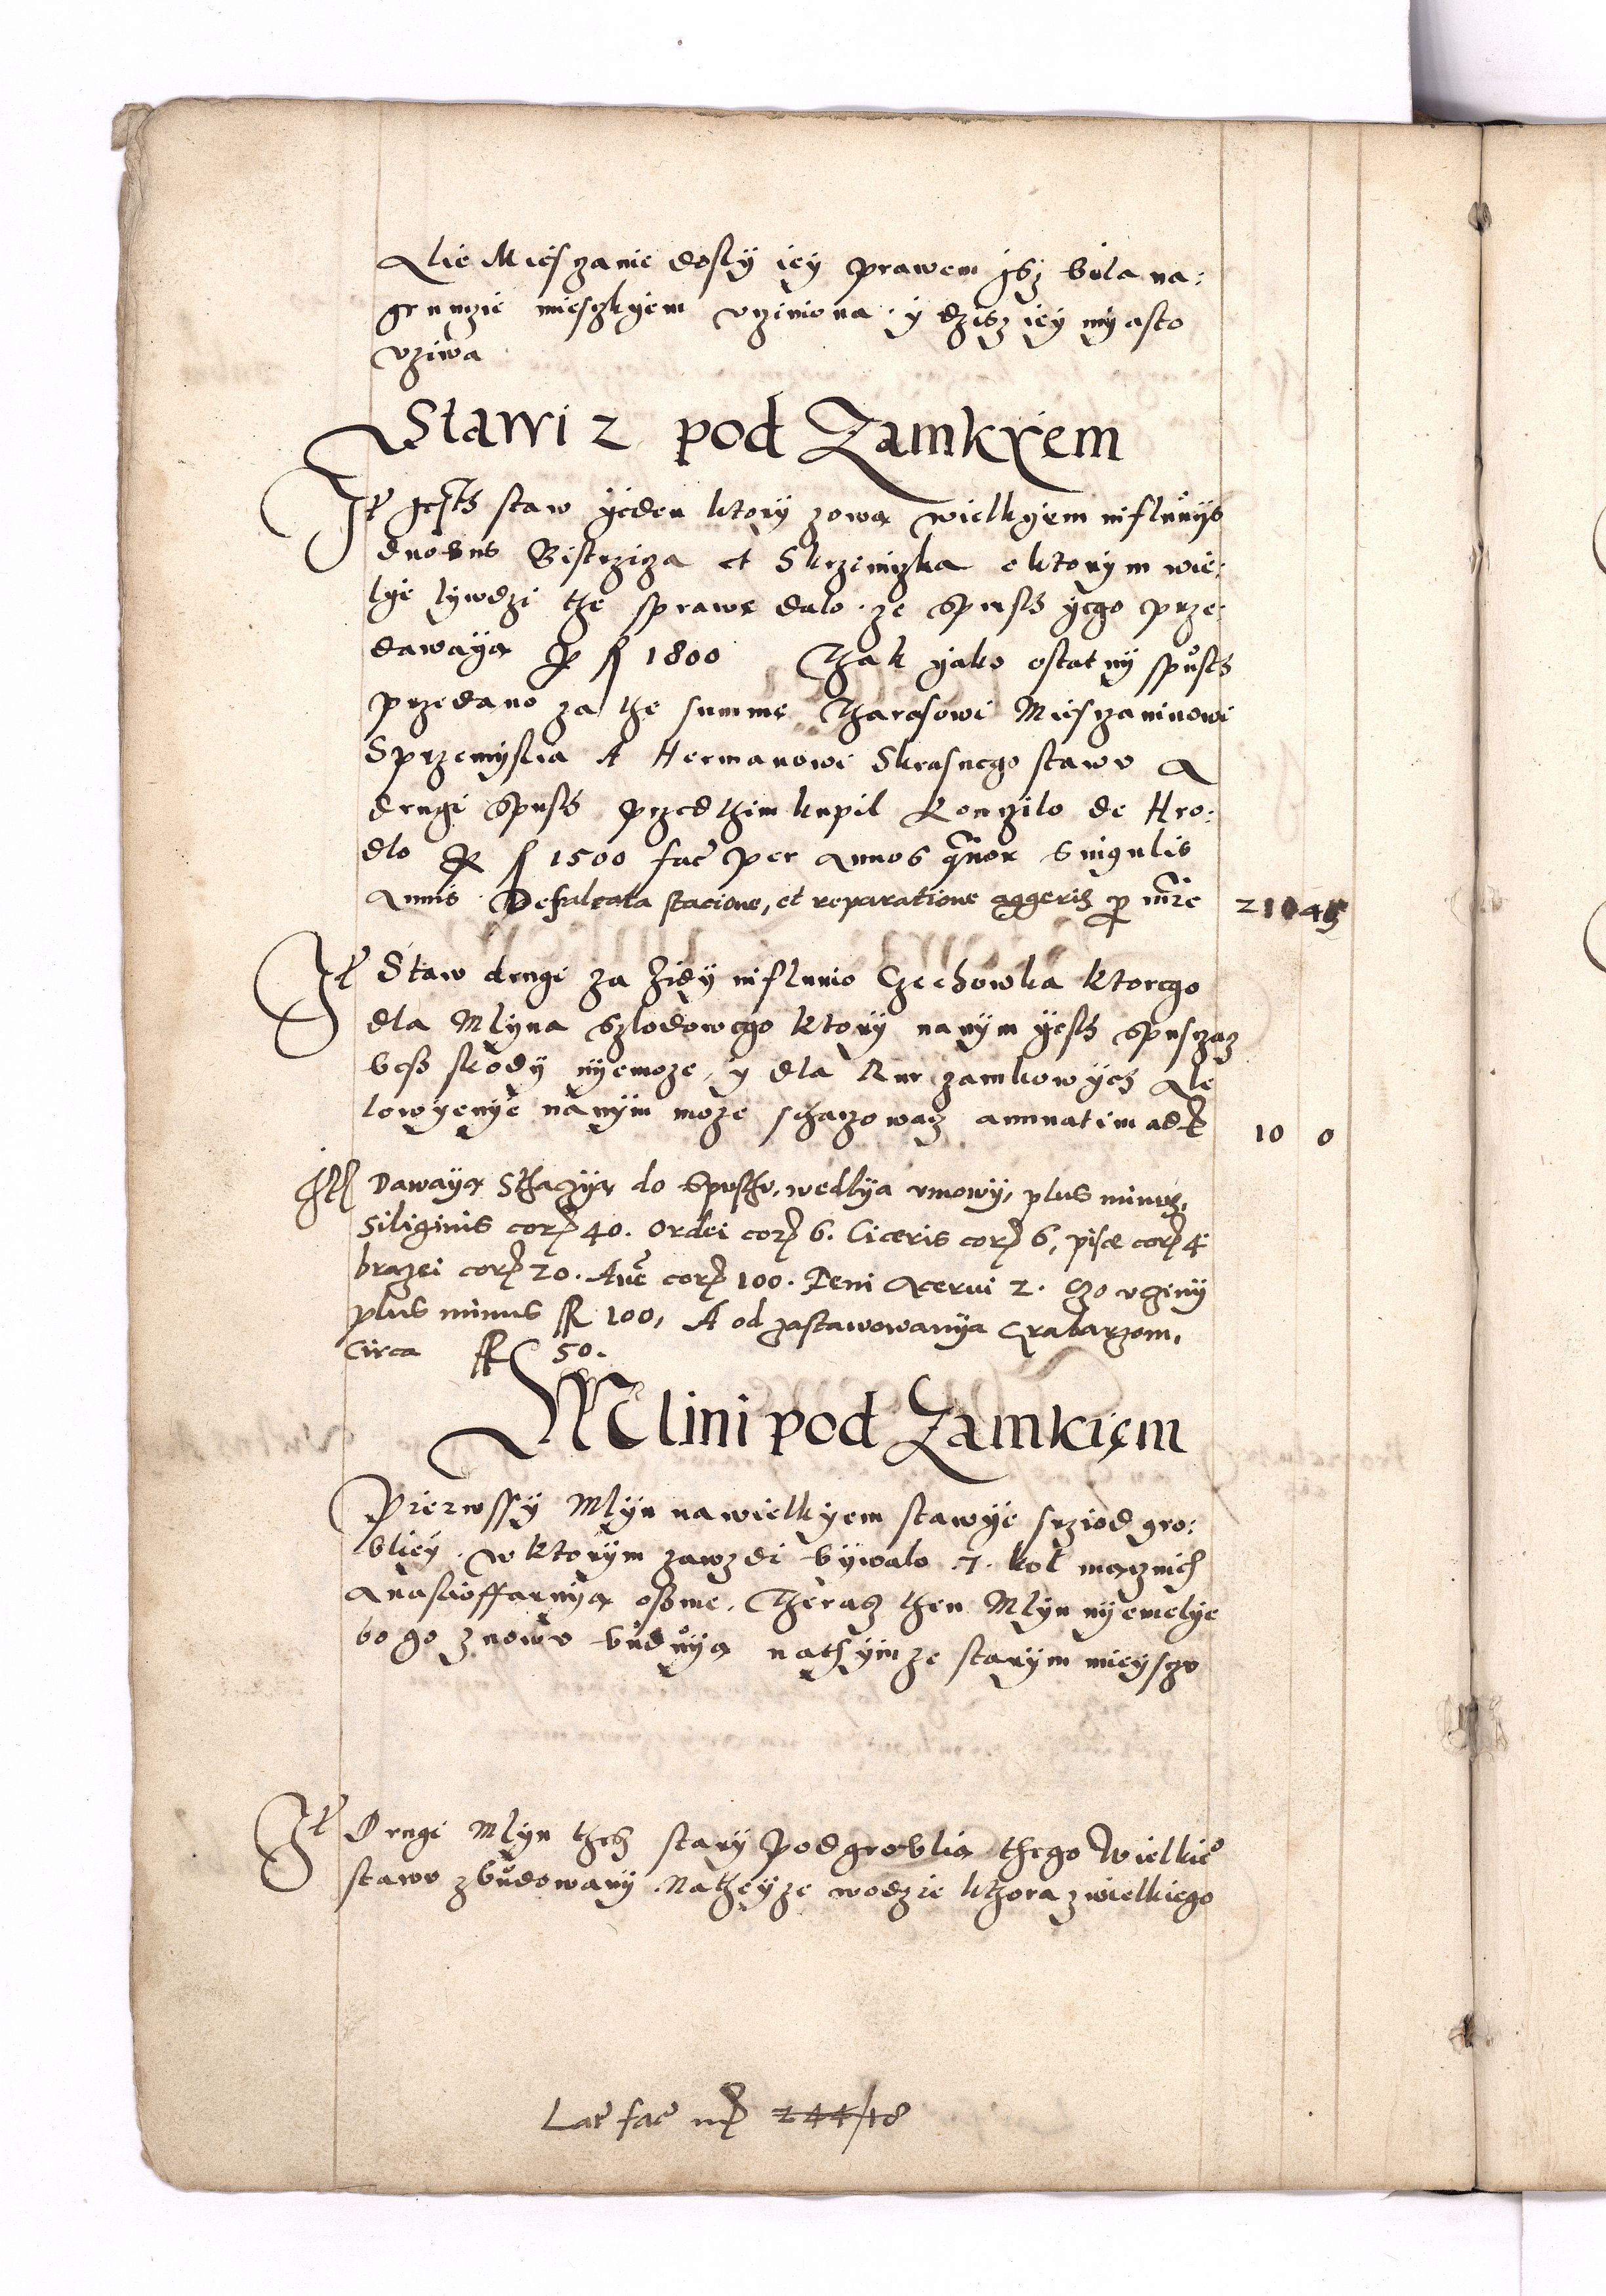 Alie Miesczanie dosly iey prawem jsz bila na:
gruncie mieszkyem vczinona. y dzisz iey myasto
vziwa
Stawi 2 pod Zamkxem
Jt gests staw yeden ktory zowa wielkyem in fluuys
duobus Bistrziza et Skrzinizka o ktorym wie:
lye lywdzi the sprawe dalo. ze spusts yego prze:
dawaya p fl 1800 Thak yako ostatny spusts
przedano za the summe Tharasowi Miesczaninowi
S przemyslia A Hermanowi Skrasnego stawo A
drugi spusts przed thim kupil Konczilo de Hro:
dlo p fl 1500 fac per annos quor singulis
annis Defalcata stacione, et reparatione aggeris p mre 210 45
Jt Staw drugi za Zidy in fluuio Czechowka ktorego
dla Mlyna szlodowego ktory na nym yests spusczaz
besz skody nyemoze, y dla Rur zamkowych Ale
lowyenye na nym moze schaczowacz annuatim ad 10 0
Jt Dawaya Sthaczya do spustho, wedlya vmowy, plus minus,
siliginis cor 40. Ordei cor 6. Ciceris cor 6, pise cor 4
brazei cor 20. Aue cor 100. Feni Acerui 2. Czo vcziny
plus minus fl 100, A od zastawowanya Grabarzom,
Circa fl 50.
Mlini pod Zamkiem
Pierwssy Mlyn na wielkyem stawye srziod gro:
bliey. w ktorym zawzdi bywalo 7. kol macznich
A na slioffarnya osme. Theras then Mlyn nyemelye
bo go znowo buduya nathymze starym mieysczo
Jt Drugi Mlyn thesz stary pod groblia thego Wielkieo
stawo zbudowany. Natheyze wodzie kthora z wielkiego
Lat fac mr 244/18